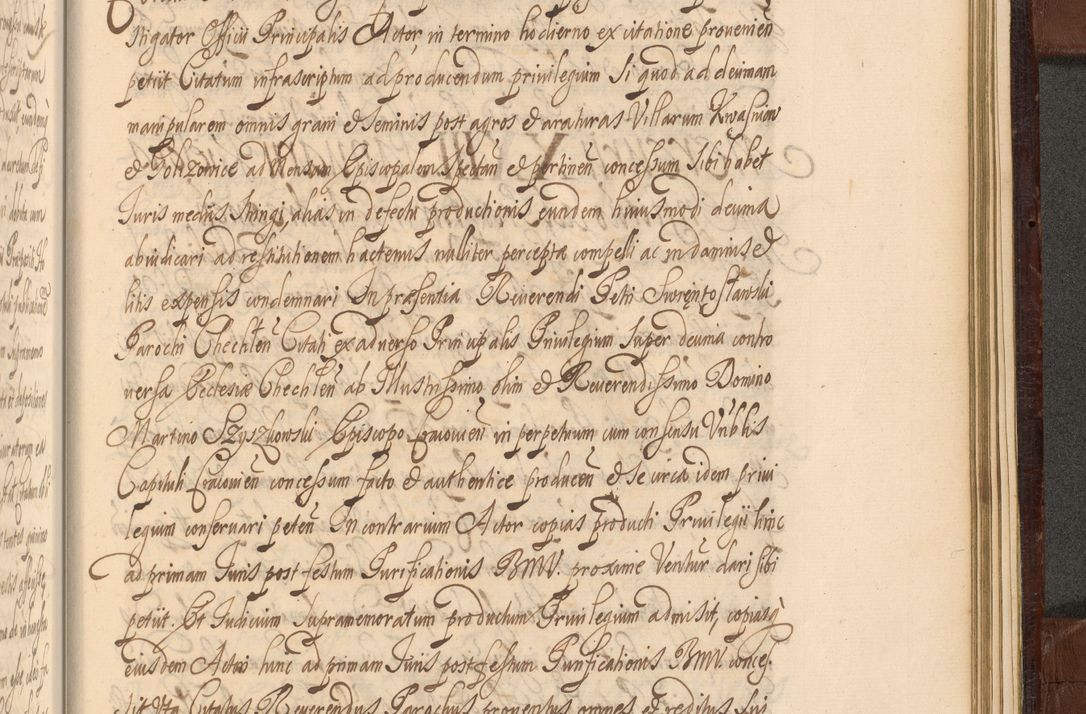 stigator Officii Principalis Actor in termino hodierno ex citatione provenien̄
petiit Citatum infrascriptum ad producendum privilegium si quod ad decimam
manipularem omnis grani et seminis post agros et araturas Villarum Kwasniow
et Golizowice ad Mensam Episcopalem spectan̄ et pertinen̄ concessum sibi habet
Iuris mediis stringi, alias in defectu productionis eandem huiusmodi decima
abiudicari ad restitutionem hactenus nulliter perceptæ compelli ac in damnis et
litis expensis condemnari In præsentia Reverendi Petri
Parochi Chechlen̄ Citati ex adverso Principalis Privilegium super decima contro
versa Ecclesiæ Chechlen̄ ab Illustrissimo olim et Reverendissimo Domino
Martino Szyszkowski Episcopo Cracovien̄ in perpetuum cum consensu Vnblis
Capituli Cracovien̄ concessum facto et authentice producen̄ et se circa idem privi
legium conservari peten̄ In contrarium Actor copias producti Privilegii hinc
ad primam Iuris post festum Purificationis BMV. proxime Ventur̄ dari sibi
petiit. Et Iudicium supramemoratum productum Privilegium admisit, copiasq̀
eiusdem Actori hinc ad primam Iuris post festum Purificationis BMV conces
sit Vta Citatus Reverendus Parochus proventus omnes et reditus sui